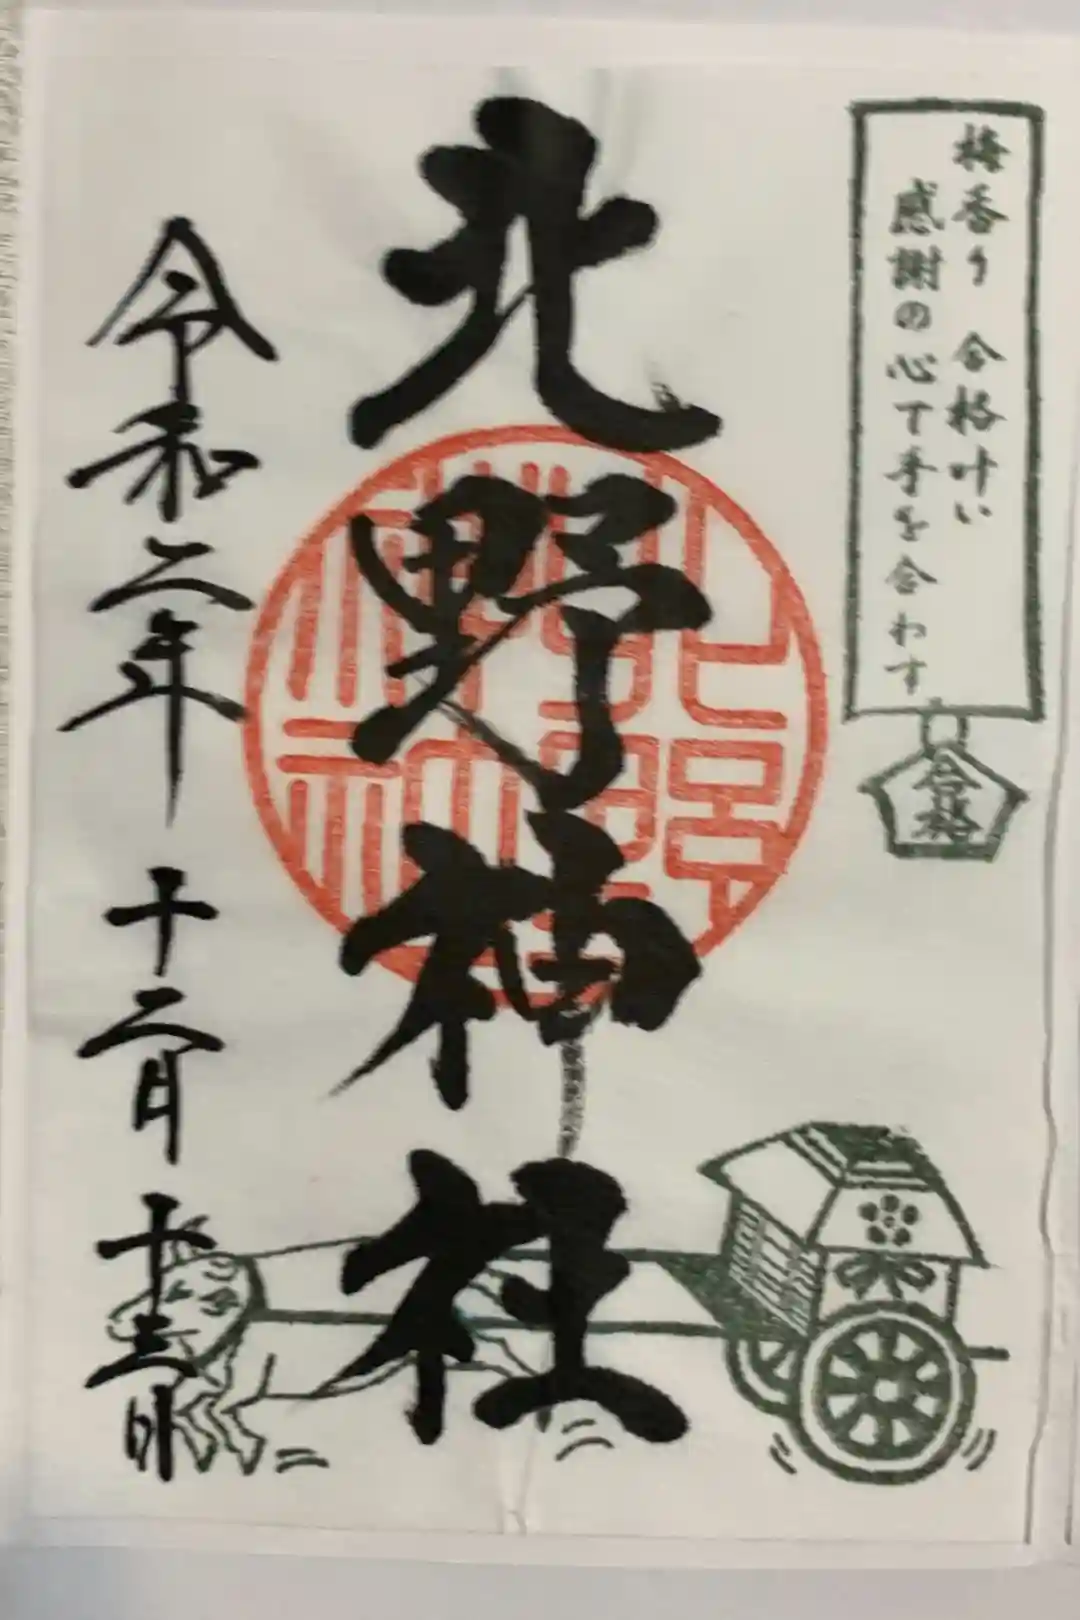 梅香り 合格叶い
感謝の心で手を合わす
合格
北野神社
令和二年 十二月 十三日